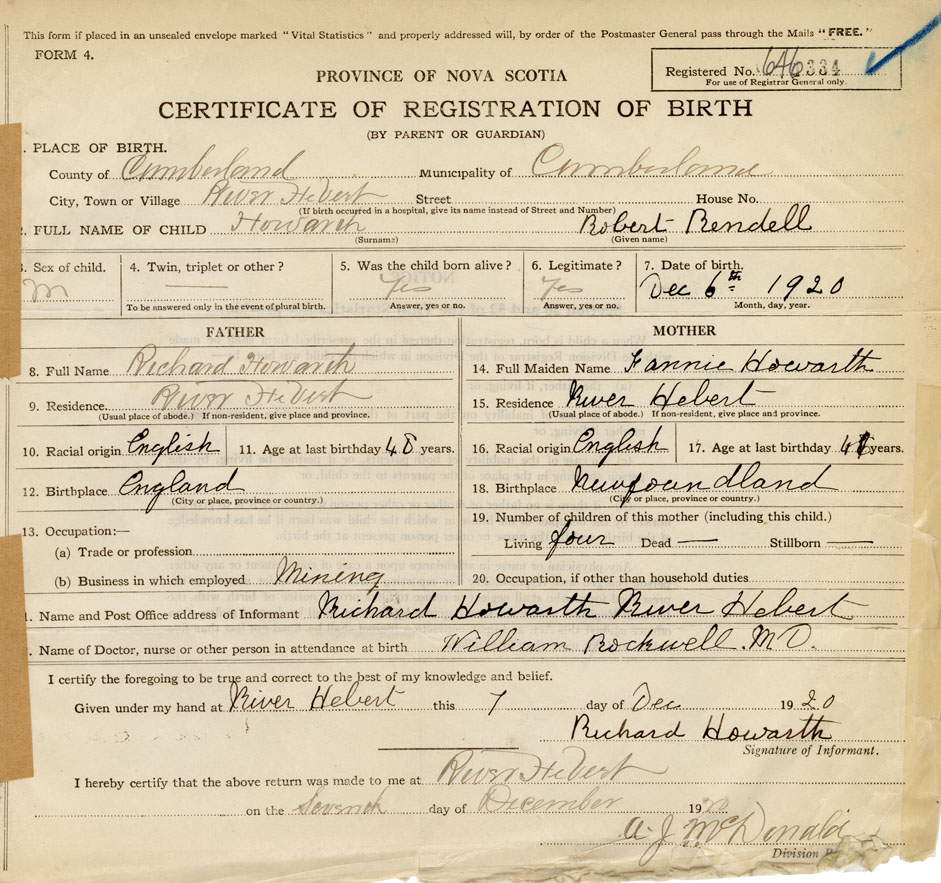 This form if placed in an unsealed envelope marked "Vital Statistics" and properly addressed will, by order of the Postmaster General pass through the Mails "FREE."
FORM 4.
PROVINCE OF NOVA SCOTIA
Registered No. 646334
For use of Registrar General only.
CERTIFICATE OF REGISTRATION OF BIRTH
(BY PARENT OR GUARDIAN)
. PLACE OF BIRTH.
County of Cumberland Municipality of Cumberland
City, Town or Village River Hebert Street House No.
(If birth occurred in a hospital, give its name instead of Street and Number)
. FULL NAME OF CHILD Howarth Robert Rendell
(Surname) (Given name)
. Sex of child. 4. Twin, triplet or other? 5. Was the child born alive? 6. Legitimate? 7. Date of birth.
M — Yes Yes Dec 6th 1920
To be answered only in the event of plural birth. Answer, yes or no. Answer, yes or no. Month, day, year.
FATHER MOTHER
8. Full Name Richard Howarth 14. Full Maiden Name Fannie Howarth
9. Residence. River Hebert 15. Residence River Hebert
(Usual place of abode.) If non-resident, give place and province. (Usual place of abode.) If non-resident, give place and province.
10. Racial origin English 11. Age at last birthday 48 years. 16. Racial origin English 17. Age at last birthday years.
12. Birthplace England 18. Birthplace Newfoundland
(City or place, province or country.) (City or place, province or country.)
13. Occupation:— 19. Number of children of this mother (including this child.)
(a) Trade or profession Living four Dead — Stillborn —
(b) Business in which employed Mining 20. Occupation, if other than household duties
. Name and Post Office address of Informant Richard Howarth River Hebert
. Name of Doctor, nurse or other person in attendance at birth William Rockwell. M D.
I certify the foregoing to be true and correct to the best of my knowledge and belief.
Given under my hand at River Hebert this 7 day of Dec 1920
Richard Howarth
Signature of Informant.
I hereby certify that the above return was made to me at River Hebert
on the Seventh day of December 1920
A. J. McDonald
Division